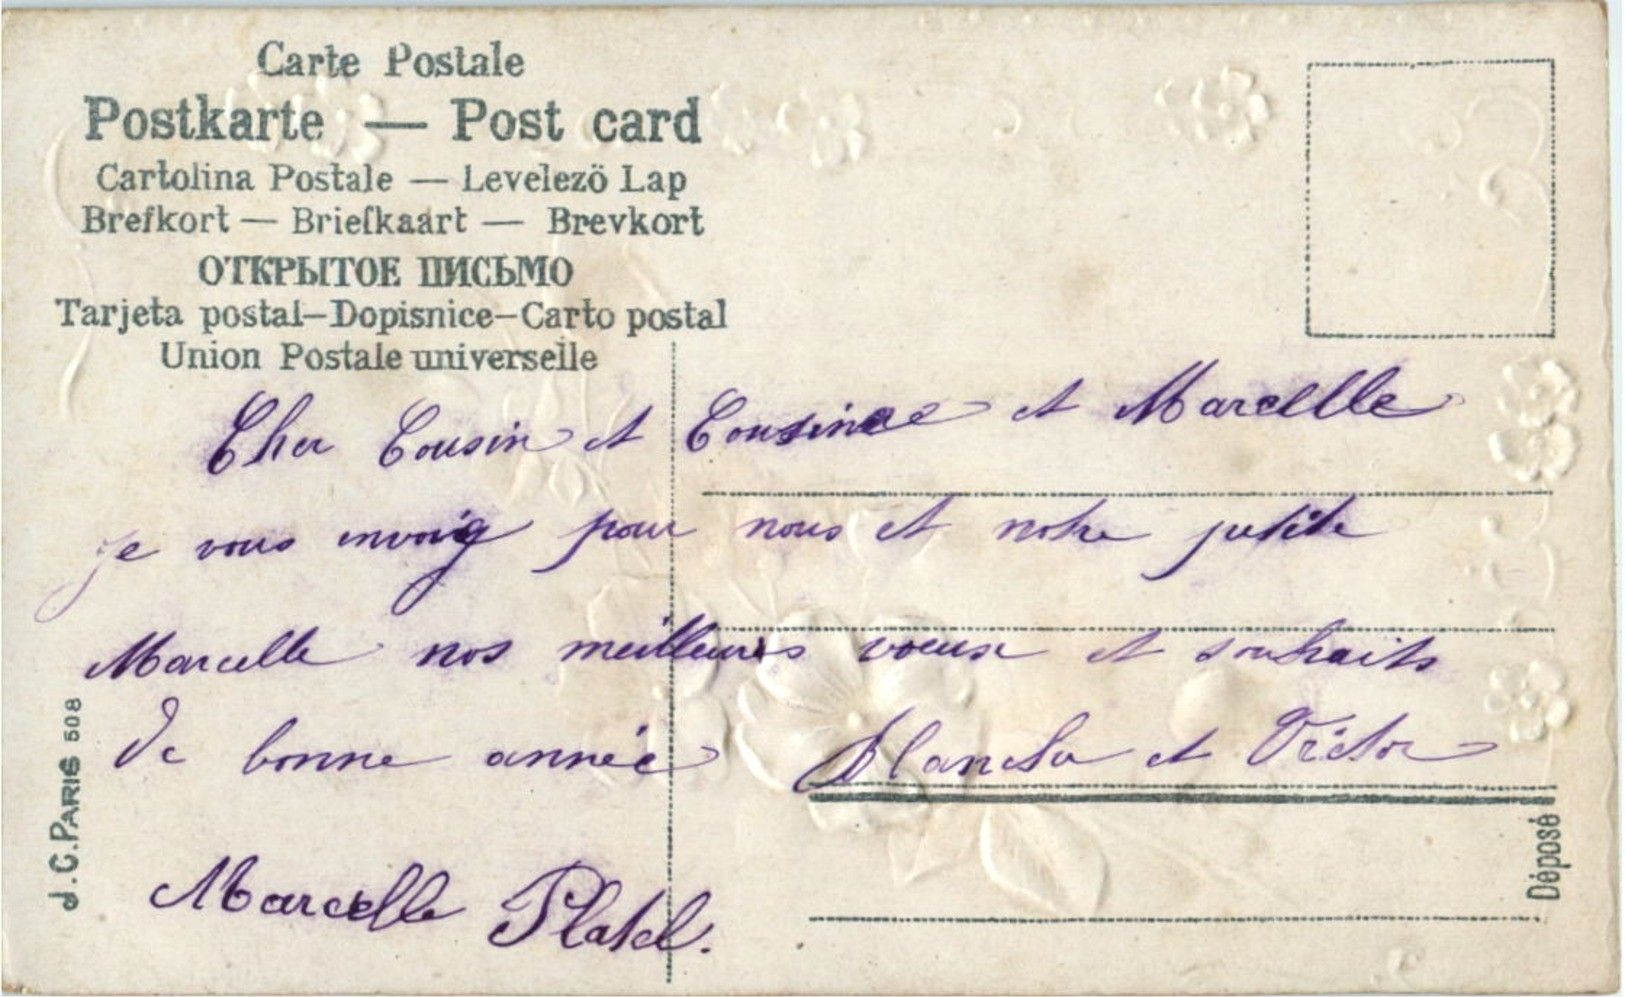 Carte Postale
Postkarte — Post card
Cartolina Postale — Levelezö Lap
Brefkort — Briefkaart — Brevkort
ОТКРЫТОЕ ПИСЬМО
Tarjeta postal–Dopisnice–Carto postal
Union Postale universelle
Cher Cousin et Cousine et Marcelle
je vous envoie pour nous et notre petite
Marcelle nos meilleurs voeux et souhaits
de bonne année Blanche et Victor
Marcelle Platel.
J.C. PARIS 508
Déposé